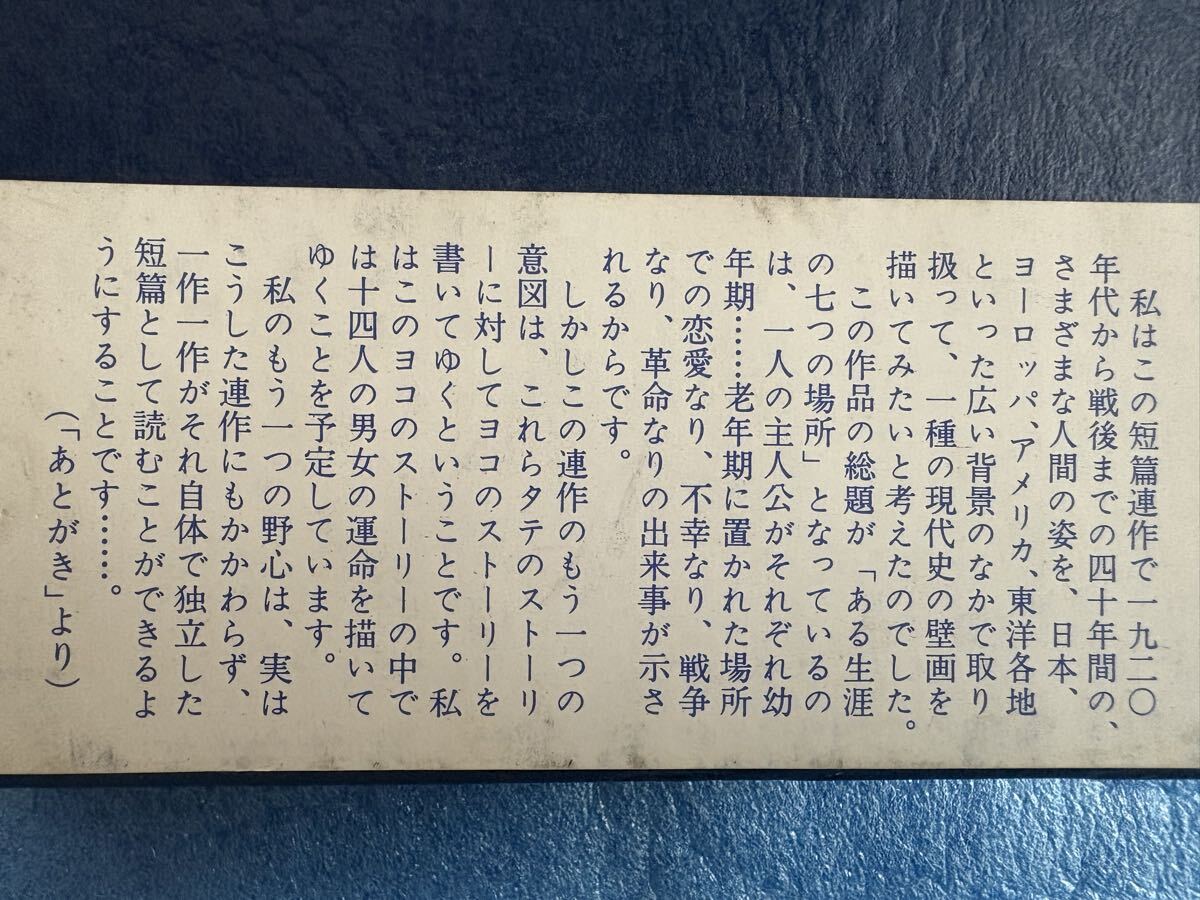 私はこの短篇連作で一九二〇
年代から戦後までの四十年間の、
さまざまな人間の姿を、日本、
ヨーロッパ、アメリカ、東洋各地
といった広い背景のなかで取り
扱って、一種の現代史の壁画を
描いてみたいと考えたのでした。
この作品の総題が「ある生涯
の七つの場所」となっているの
は、一人の主人公がそれぞれ幼
年期……老年期に置かれた場所
での恋愛なり、不幸なり、戦争
なり、革命なりの出来事が示さ
れるからです。
しかしこの連作のもう一つの
意図は、これらタテのストーリ
ーに対してヨコのストーリーを
書いてゆくということです。私
はこのヨコのストーリーの中で
は十四人の男女の運命を描いて
ゆくことを予定しています。
私のもう一つの野心は、実は
こうした連作にもかかわらず、
一作一作がそれ自体で独立した
短篇として読むことができるよ
うにすることです……。
(「あとがき」より)